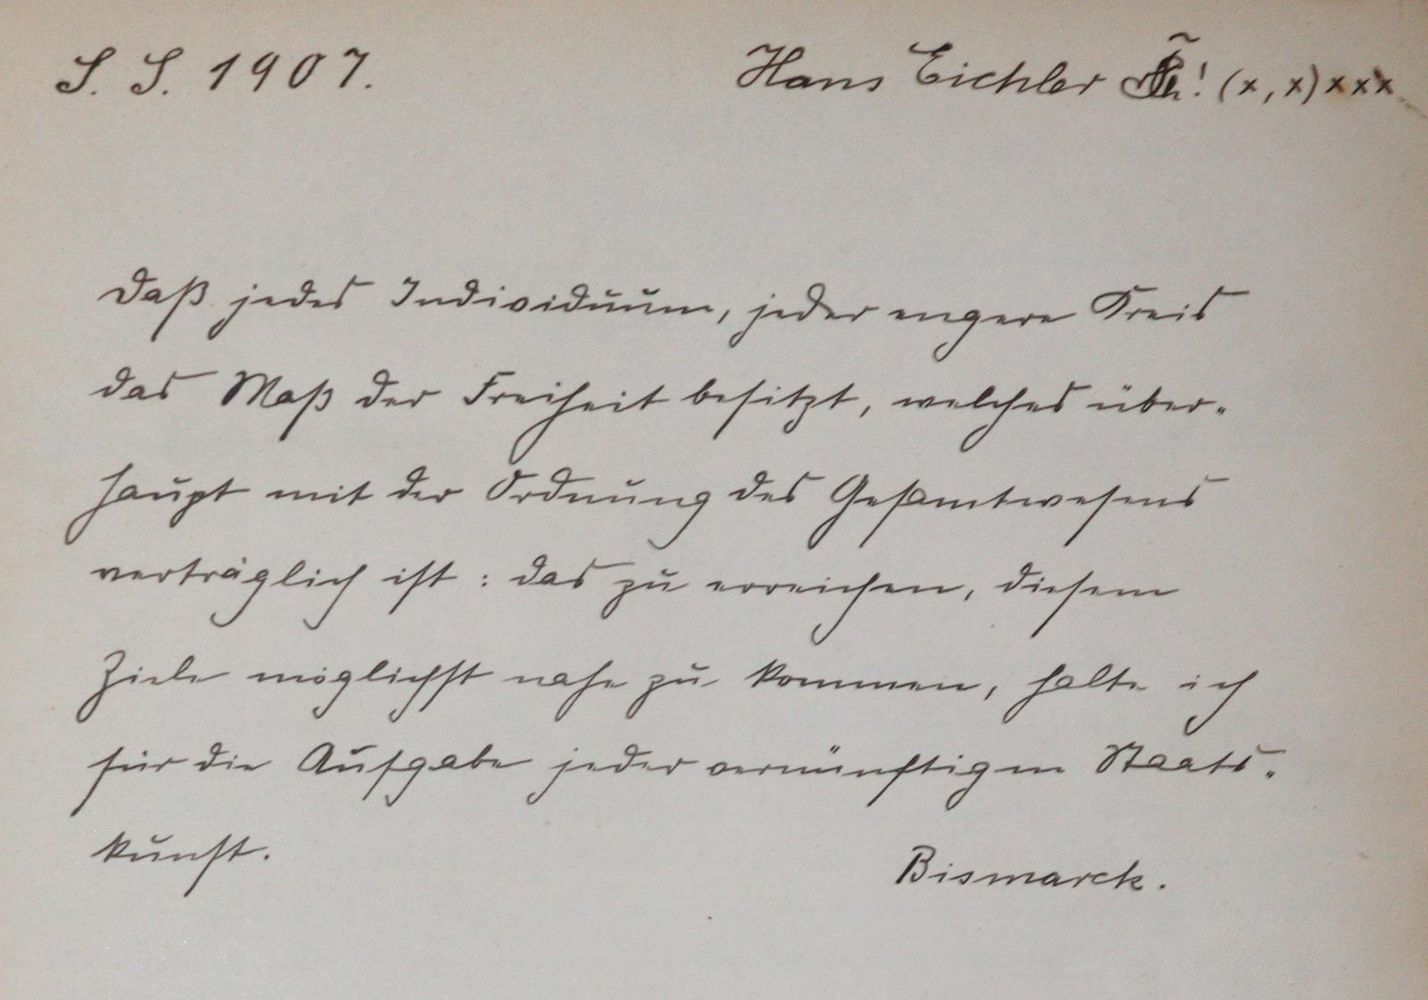 S. S. 1907.
Hans Eichler ! (x, x) x x x
Daß jedes Individuum, jeder engere Kreis
das Maß der Freiheit besitzt, welches über-
haupt mit der Ordnung des Gesamtwesens
verträglich ist: das zu erreichen, diesem
Ziele möglichst nahe zu kommen, halte ich
für die Aufgabe jeder vernünftigen Staats-
kunst.
Bismarck.